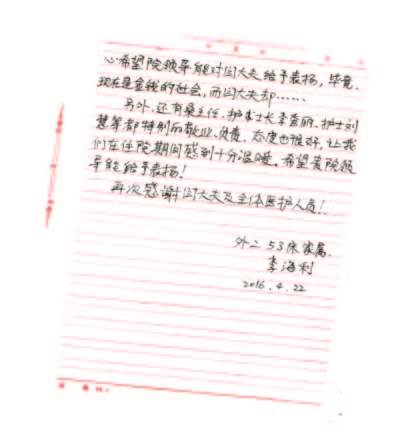 心希望院领导能对闫大夫给予表扬,毕竟,
现在是金钱的社会,而闫大夫却……
另外,还有桑主任、护士长李喜丽、护士刘
慧等都特别的敬业、负责、态度也很好,让我
们在住院期间感到十分温暖。希望贵院领
导能给予表扬!
再次感谢闫大夫及全体医护人员!
外二53床家属.
李海利
2016.4.22